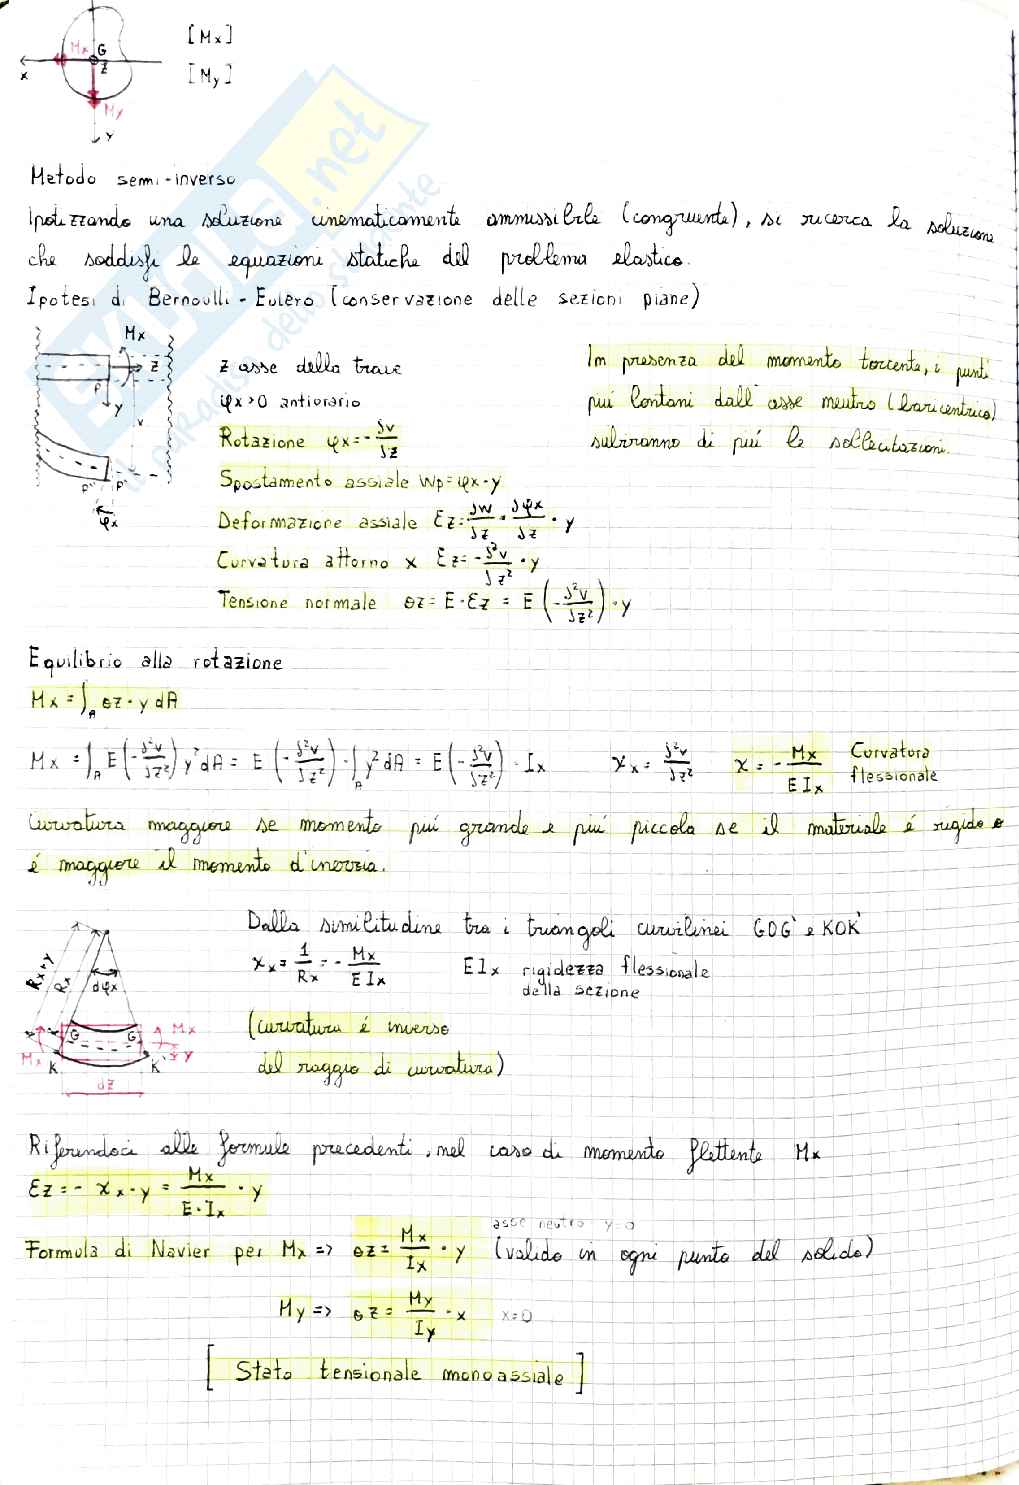 [Mx]
[My]
Mx G
x z
My
y
Metodo semi-inverso
Ipotizzando una soluzione cinematicamente ammissibile (congruente), si ricerca la soluzione
che soddisfi le equazioni statiche del problema elastico.
Ipotesi di Bernoulli-Eulero (conservazione delle sezioni piane)
Mx
z
P
y
v
P'' P'
φx
z asse della trave
φx>0 antiorario
Rotazione φx=-δv/δz
Spostamento assiale Wp=φx·y
Deformazione assiale Ez=δw/δz=δφx/δz·y
Curvatura attorno x Ez=-δ²v/δz²·y
Tensione normale σz=E·Ez=E(-δ²v/δz²)·y
In presenza del momento torcente, i punti
piú lontani dall'asse neutro (baricentrico)
subiranno di piú le sollecitazioni.
Equilibrio alla rotazione
Mx=∫A σz·y dA
Mx=∫A E(-δ²v/δz²)y²dA=E(-δ²v/δz²)·∫A y²dA=E(-δ²v/δz²)·Ix χx=δ²v/δz² χ=-Mx/EIx Curvatura
flessionale
Curvatura maggiore se momento piú grande e piú piccola se il materiale é rigido o
é maggiore il momento d'inerzia.
Rx+y
Rx
dφx
G G'
Mx Mx
y
K K'
dz
Dalla similitudine tra i triangoli curvilinei GOG' e KOK'
χx=1/Rx=-Mx/EIx EIx rigidezza flessionale
della sezione
(curvatura é inverso
del raggio di curvatura)
Riferendoci alle formule precedenti, nel caso di momento flettente Mx
Ez=-χx·y=Mx/E·Ix·y
asse neutro y=0
Formula di Navier per Mx=> σz=Mx/Ix·y (valido in ogni punto del solido)
My=> σz=My/Iy·x x=0
[Stato tensionale monoassiale]